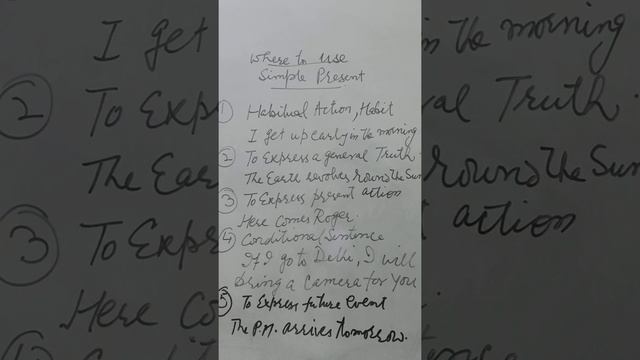 Where to use
Simple Present
① Habitual Action, Habit
I get up early in the morning
② To Express a general Truth.
The Earth revolves round the Sun
③ To Express present action
Here comes Roger.
④ Conditional Sentence
If I go to Delhi, I will
bring a Camera for You
⑤ To Express future event
The P.M. arrives tomorrow.